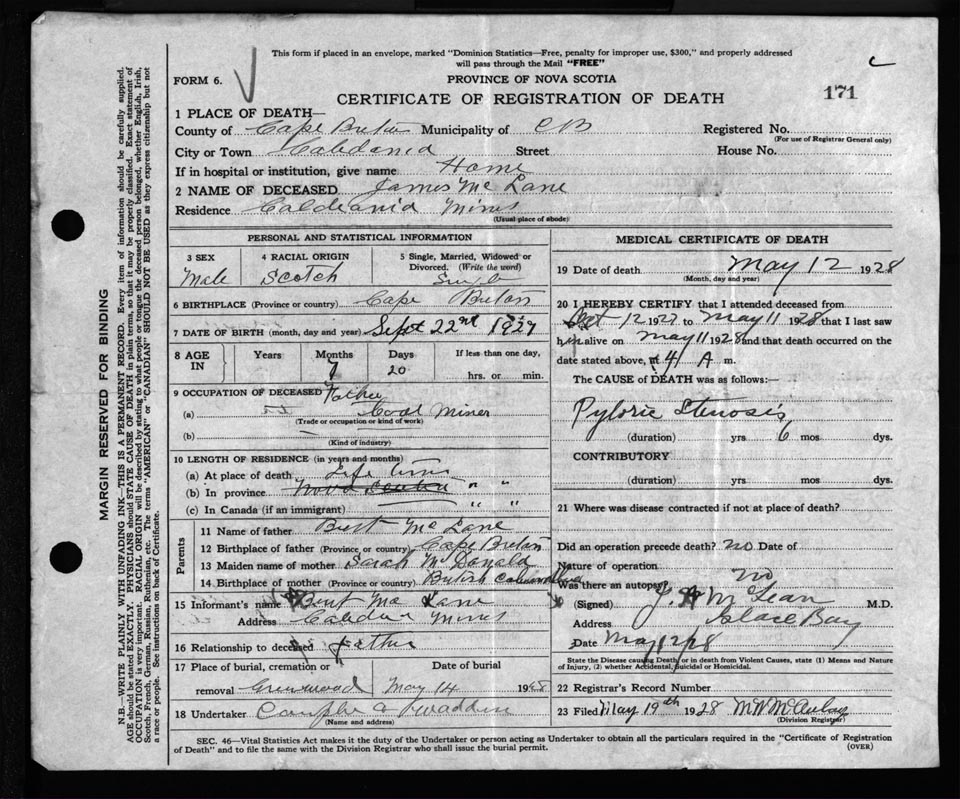 This form if placed in an envelope, marked "Dominion Statistics—Free, penalty for improper use, $300," and properly addressed
will pass through the Mail "FREE"
FORM 6.
PROVINCE OF NOVA SCOTIA
CERTIFICATE OF REGISTRATION OF DEATH
171
1 PLACE OF DEATH—
County of Cape Breton Municipality of CB Registered No.
(For use of Registrar General only)
City or Town Caledonia Street House No.
If in hospital or institution, give name Home
2 NAME OF DECEASED James Mc Lane
Residence Caldeania Mines
(Usual place of abode)
PERSONAL AND STATISTICAL INFORMATION
3 SEX
Male
4 RACIAL ORIGIN
Scotch
5 Single, Married, Widowed or
Divorced. (Write the word)
Single
6 BIRTHPLACE (Province or country) Cape Breton
7 DATE OF BIRTH (month, day and year) Sept 22nd 1927
8 AGE
IN
Years
Months
7
Days
20
If less than one day,
hrs. or min.
9 OCCUPATION OF DECEASED Father
(a) Coal Miner
(Trade or occupation or kind of work)
(b)
(Kind of industry)
10 LENGTH OF RESIDENCE (in years and months)
(a) At place of death Life time
(b) In province Nova Scotia " "
(c) In Canada (if an immigrant) " "
Parents
11 Name of father Burt Mc Lane
12 Birthplace of father (Province or country) Cape Breton
13 Maiden name of mother Sarah McDonald
14 Birthplace of mother (Province or country) British Columbia
15 Informant's name Burt Mc Lane
Address Mines
16 Relationship to deceased father
17 Place of burial, cremation or
removal Greenwood
Date of burial
May 14 1928
18 Undertaker
(Name and address)
MEDICAL CERTIFICATE OF DEATH
19 Date of death May 12 1928
(Month, day and year)
20 I HEREBY CERTIFY that I attended deceased from
12 1927 to May 11 1928 that I last saw
him alive on May 11 1928 and that death occurred on the
date stated above, at 4 A m.
The CAUSE of DEATH was as follows:—
Pyloric Stenosis
(duration) yrs 6 mos dys.
CONTRIBUTORY
(duration) yrs mos dys.
21 Where was disease contracted if not at place of death?
Did an operation precede death? no Date of
Nature of operation
Was there an autopsy? no
(Signed) J. McLean M.D.
Address Glace Bay
Date May 12/28
State the Disease causing Death, or in death from Violent Causes, state (1) Means and Nature
of Injury, (2) whether Accidental, Suicidal or Homicidal.
22 Registrar's Record Number
23 Filed May 19th 1928 McAulay
(Division Registrar)
SEC. 46—Vital Statistics Act makes it the duty of the Undertaker or person acting as Undertaker to obtain all the particulars required in the "Certificate of Registration
of Death" and to file the same with the Division Registrar who shall issue the burial permit.
(OVER)
MARGIN RESERVED FOR BINDING
N.B.—WRITE PLAINLY WITH UNFADING INK—THIS IS A PERMANENT RECORD. Every item of information should be carefully supplied.
AGE should be stated EXACTLY. PHYSICIANS should STATE CAUSE OF DEATH in plain terms, so that it may be properly classified. Exact statement of
OCCUPATION is very important. RACIAL ORIGIN will be described by stating to what people or tongue the deceased person belonged, whether English, Irish,
Scotch, French, German, Russian, Ruthenian, etc. The terms "AMERICAN" or "CANADIAN" SHOULD NOT BE USED as they express citizenship but not
a race or people. See instructions on back of Certificate.